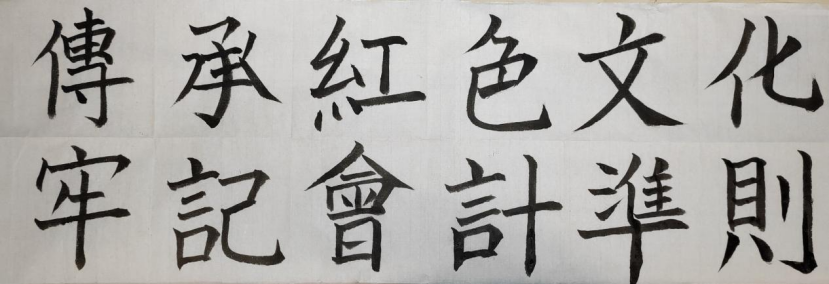 傳承紅色文化
牢記會計準則